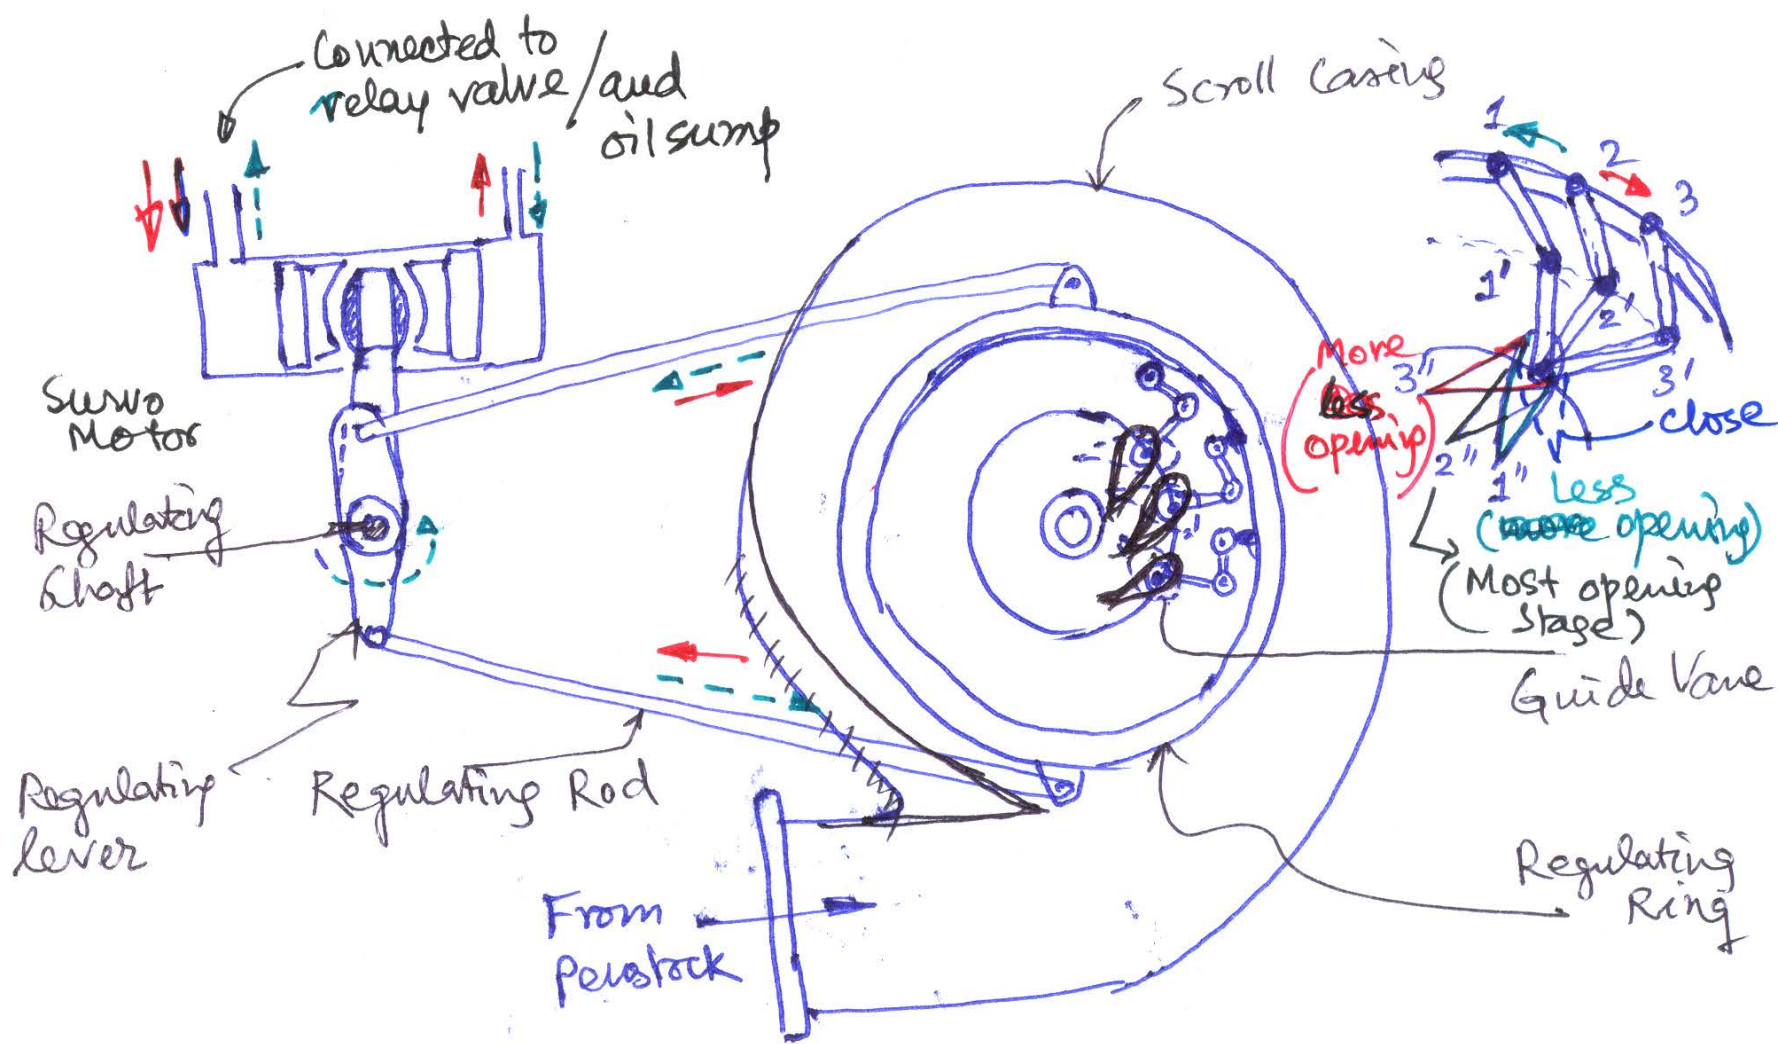 Connected to
relay valve/and
oil sump
Scroll Casing
1
2
3
1'
2'
3'
More
less
opening
3"
close
2"
1"
Less
(more opening)
(Most opening
stage)
Survo
Motor
Regulating
Shaft
Guide Vane
Regulating
lever
Regulating Rod
From
Penstock
Regulating
Ring